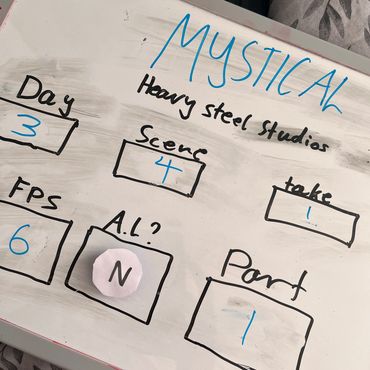 MYSTICAL
Heavy Steel Studios
Day
3
Scene
4
take
1
FPS
6
A.I.?
N
Part
1